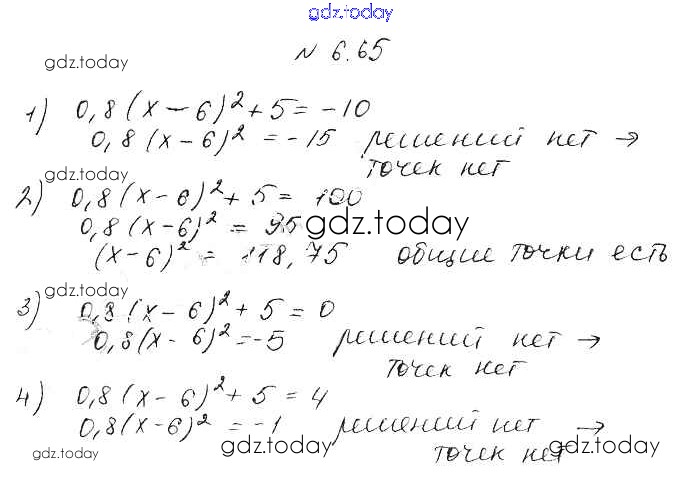 gdz.today
№ 6.65
gdz.today
1) 0,8(x-6)²+5=-10
0,8(x-6)²=-15 решений нет →
точек нет
gdz.today
2) 0,8(x-6)²+5=100
0,8(x-6)²=95
gdz.today
(x-6)²=118,75 общие точки есть
gdz.today
3) 0,8(x-6)²+5=0
0,8(x-6)²=-5 решений нет →
точек нет
gdz.today
4) 0,8(x-6)²+5=4
0,8(x-6)²=-1 решений нет →
точек нет
gdz.today gdz.today gdz.today